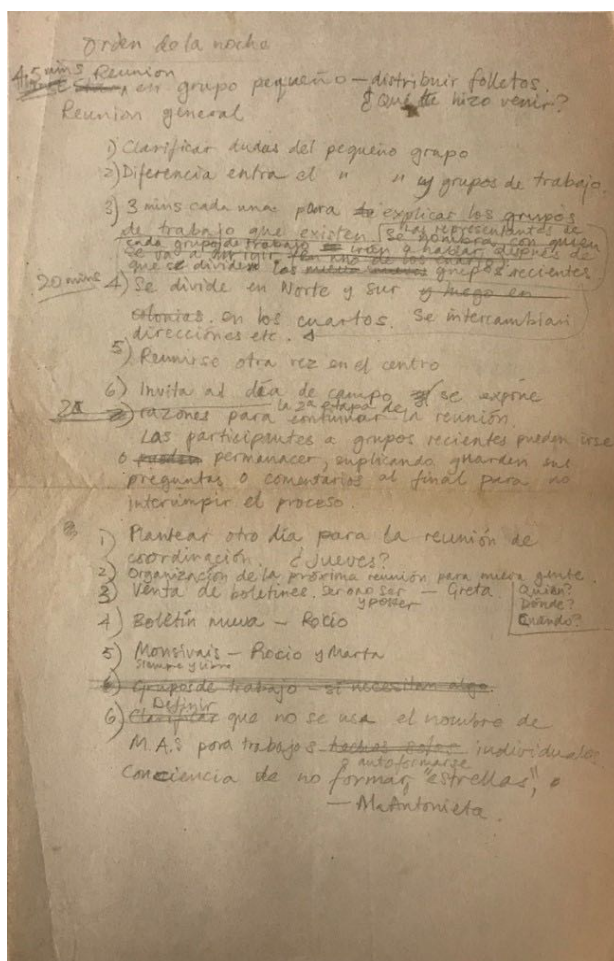 Orden de la noche
45 mins Reunion
en grupo pequeño – distribuir folletos.
¿Qué te hizo venir?
Reunion general
1) Clarificar dudas del pequeño grupo
2) Diferencia entra el " " y grupos de trabajo.
3) 3 mins cada una para explicar los grupos
de trabajo que existen. Las representantes de
cada grupo de trabajo irien a hablar después de
que se dividen los grupos recientes
20 mins 4) Se divide en Norte y sur y luego en
colonias. en los cuartos. Se intercambian
direcciones etc.
5) Reunirse otra vez en el centro
6) Invita al día de campo se expone
la 2ª etapa de
razones para continuar la reunión.
Las participantes a grupos recientes pueden irse
o pueden permanacer, suplicando guarden sus
preguntas o comentarios al final para no
interrumpir el proceso.
1) Plantear otro día para la reunión de
coordinación. ¿Jueves?
2) Organización de la próxima reunión para nueva gente.
Quian?
Dónde?
Cuando?
3) Venta de boletines. Ser o no ser – Greta
y poster
4) Boletín nueva – Rocío
5) Monsivais – Rocío y Marta
Siempre y libro
6) Grupos de trabajo – si necesitan algo.
Definir
6) Clarificar que no se usa el nombre de
M.A.S para trabajos hechos solos individuales
o autoformarse
Conciencia de no formar "estrellas",
– Ma Antonieta.